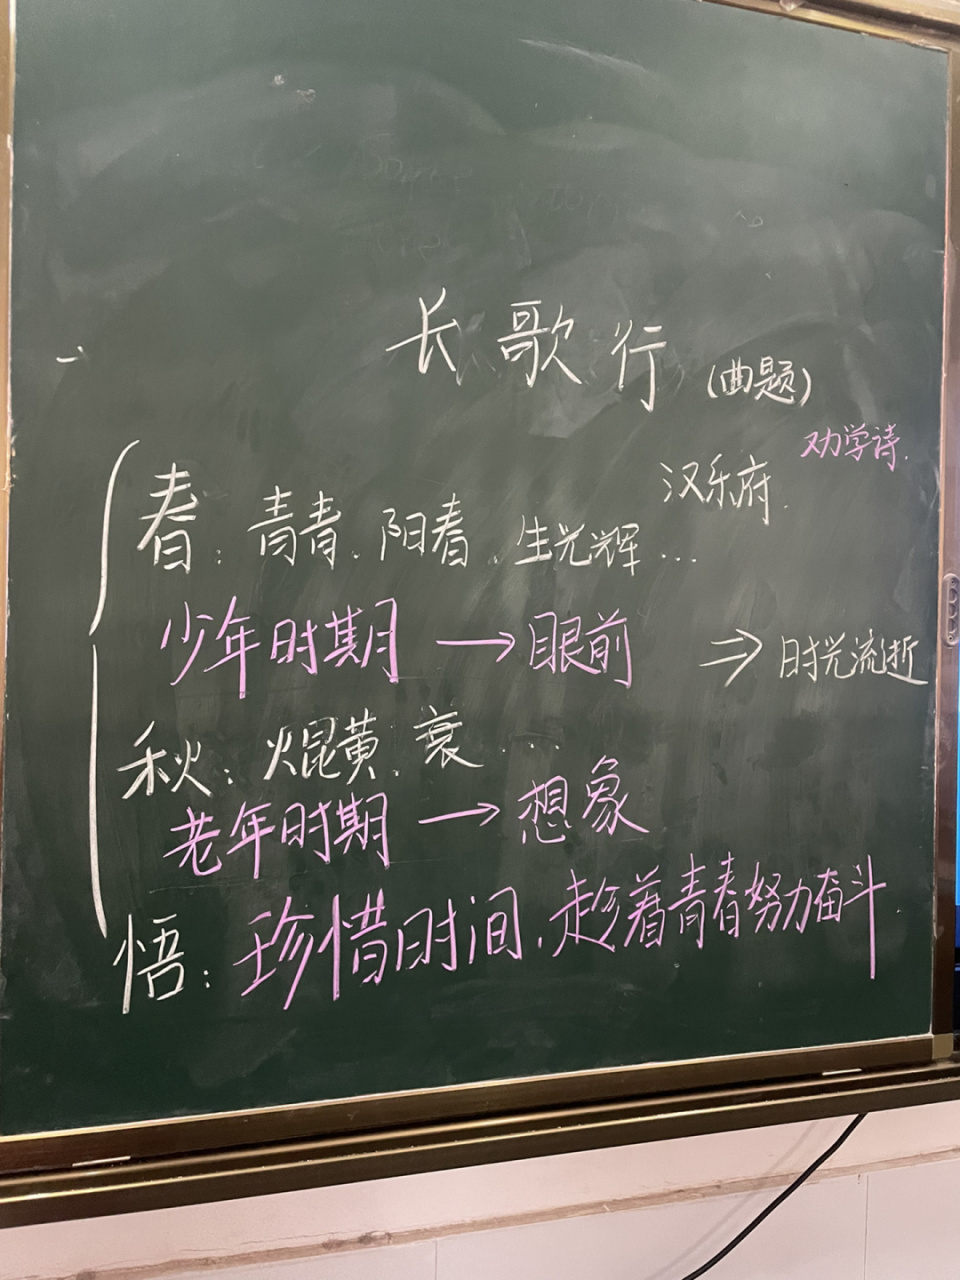 长歌行(曲题)
劝学诗.
汉乐府.
春:青青.阳春.生光辉...
少年时期→眼前 ⇒时光流逝
秋:焜黄.衰...
老年时期→想象
悟:珍惜时间,趁着青春努力奋斗.